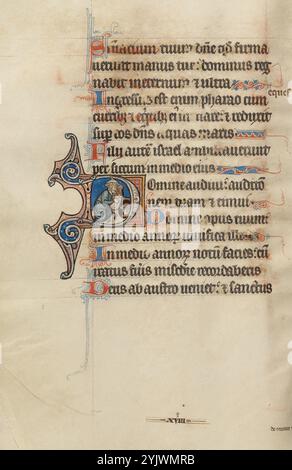 Sanctuarium tuum dñe qđ firma
uerunt manus tue: dominus reg
nabit ineternum et ultra
Ingressus est enim pharao cum
curribus et equitib; eius in mare: et reduxit
sup eos dñs aquas maris
Filii autē israel ambulauerunt
per siccum in medio eius
Domine audiui auditio
nem tuam et timui
Domine opus tuum
in medio annoꝝ uiuifica illud
In medio annoꝝ notum facies: cum
iratus fueris miscd̄ie recordaberis
Deus ab austro ueniet: et sanctus
XVIII